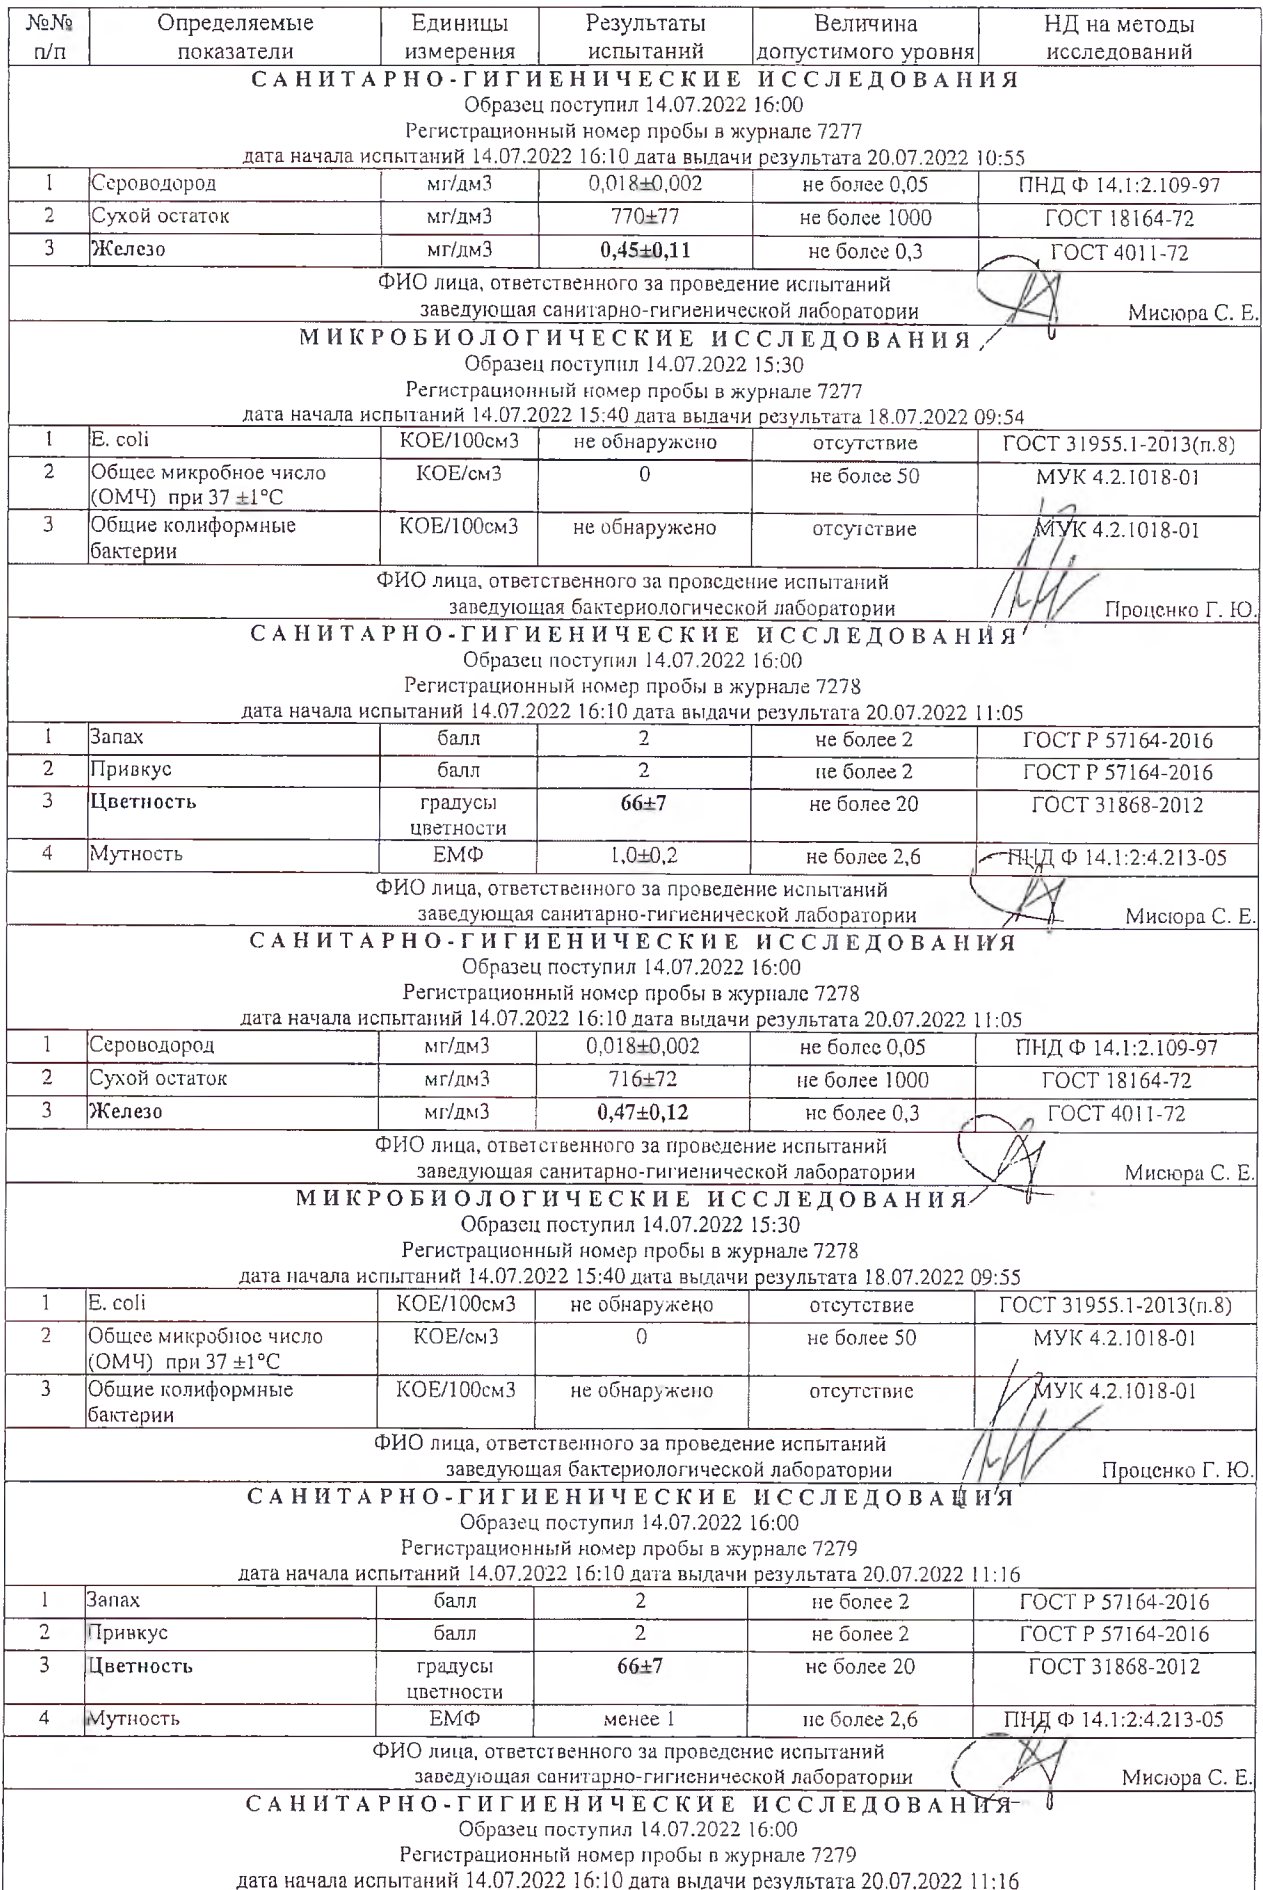 №№ п/п Определяемые показатели Единицы измерения Результаты испытаний Величина допустимого уровня НД на методы исследований
САНИТАРНО-ГИГИЕНИЧЕСКИЕ ИССЛЕДОВАНИЯ
Образец поступил 14.07.2022 16:00
Регистрационный номер пробы в журнале 7277
дата начала испытаний 14.07.2022 16:10 дата выдачи результата 20.07.2022 10:55
1 Сероводород мг/дм3 0,018±0,002 не более 0,05 ПНД Ф 14.1:2.109-97
2 Сухой остаток мг/дм3 770±77 не более 1000 ГОСТ 18164-72
3 Железо мг/дм3 0,45±0,11 не более 0,3 ГОСТ 4011-72
ФИО лица, ответственного за проведение испытаний
заведующая санитарно-гигиенической лаборатории Мисюра С. Е.
МИКРОБИОЛОГИЧЕСКИЕ ИССЛЕДОВАНИЯ
Образец поступил 14.07.2022 15:30
Регистрационный номер пробы в журнале 7277
дата начала испытаний 14.07.2022 15:40 дата выдачи результата 18.07.2022 09:54
1 E. coli КОЕ/100см3 не обнаружено отсутствие ГОСТ 31955.1-2013(п.8)
2 Общее микробное число КОЕ/см3 0 не более 50 МУК 4.2.1018-01
(ОМЧ) при 37 ±1°С
3 Общие колиформные КОЕ/100см3 не обнаружено отсутствие МУК 4.2.1018-01
бактерии
ФИО лица, ответственного за проведение испытаний
заведующая бактериологической лаборатории Проценко Г. Ю.
САНИТАРНО-ГИГИЕНИЧЕСКИЕ ИССЛЕДОВАНИЯ
Образец поступил 14.07.2022 16:00
Регистрационный номер пробы в журнале 7278
дата начала испытаний 14.07.2022 16:10 дата выдачи результата 20.07.2022 11:05
1 Запах балл 2 не более 2 ГОСТ Р 57164-2016
2 Привкус балл 2 не более 2 ГОСТ Р 57164-2016
3 Цветность градусы 66±7 не более 20 ГОСТ 31868-2012
цветности
4 Мутность ЕМФ 1,0±0,2 не более 2,6 ПНД Ф 14.1:2:4.213-05
ФИО лица, ответственного за проведение испытаний
заведующая санитарно-гигиенической лаборатории Мисюра С. Е.
САНИТАРНО-ГИГИЕНИЧЕСКИЕ ИССЛЕДОВАНИЯ
Образец поступил 14.07.2022 16:00
Регистрационный номер пробы в журнале 7278
дата начала испытаний 14.07.2022 16:10 дата выдачи результата 20.07.2022 11:05
1 Сероводород мг/дм3 0,018±0,002 не более 0,05 ПНД Ф 14.1:2.109-97
2 Сухой остаток мг/дм3 716±72 не более 1000 ГОСТ 18164-72
3 Железо мг/дм3 0,47±0,12 не более 0,3 ГОСТ 4011-72
ФИО лица, ответственного за проведение испытаний
заведующая санитарно-гигиенической лаборатории Мисюра С. Е.
МИКРОБИОЛОГИЧЕСКИЕ ИССЛЕДОВАНИЯ
Образец поступил 14.07.2022 15:30
Регистрационный номер пробы в журнале 7278
дата начала испытаний 14.07.2022 15:40 дата выдачи результата 18.07.2022 09:55
1 E. coli КОЕ/100см3 не обнаружено отсутствие ГОСТ 31955.1-2013(п.8)
2 Общее микробное число КОЕ/см3 0 не более 50 МУК 4.2.1018-01
(ОМЧ) при 37 ±1°С
3 Общие колиформные КОЕ/100см3 не обнаружено отсутствие МУК 4.2.1018-01
бактерии
ФИО лица, ответственного за проведение испытаний
заведующая бактериологической лаборатории Проценко Г. Ю.
САНИТАРНО-ГИГИЕНИЧЕСКИЕ ИССЛЕДОВАНИЯ
Образец поступил 14.07.2022 16:00
Регистрационный номер пробы в журнале 7279
дата начала испытаний 14.07.2022 16:10 дата выдачи результата 20.07.2022 11:16
1 Запах балл 2 не более 2 ГОСТ Р 57164-2016
2 Привкус балл 2 не более 2 ГОСТ Р 57164-2016
3 Цветность градусы 66±7 не более 20 ГОСТ 31868-2012
цветности
4 Мутность ЕМФ менее 1 не более 2,6 ПНД Ф 14.1:2:4.213-05
ФИО лица, ответственного за проведение испытаний
заведующая санитарно-гигиенической лаборатории Мисюра С. Е.
САНИТАРНО-ГИГИЕНИЧЕСКИЕ ИССЛЕДОВАНИЯ
Образец поступил 14.07.2022 16:00
Регистрационный номер пробы в журнале 7279
дата начала испытаний 14.07.2022 16:10 дата выдачи результата 20.07.2022 11:16